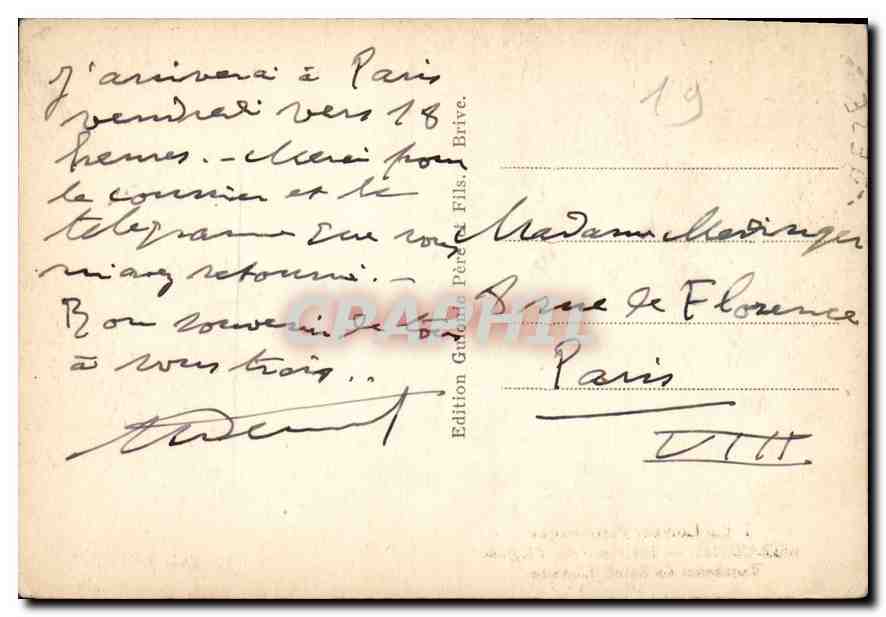 J'arriverai à Paris
vendredi vers 18
heures. - Merci pour
le courrier et le
télégramme que vous
m'avez retourné. -
Bon souvenir de tous
à vous trois..
Edition Guionie Père et Fils. Brive.
19
Madame Medinger
8 rue de Florence
Paris
VIII
CPAPHIL